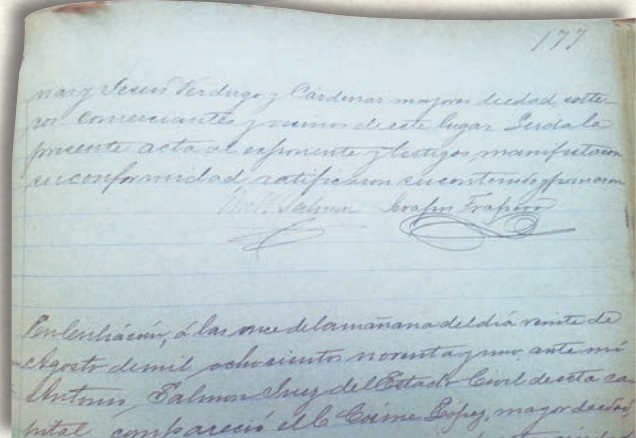 177
nas y Jesus Verdugo y Cárdenas mayores de edad, solte-
ros comerciantes y vecinos de este lugar. Leida la
presente acta al esponente y testigos, manifestaron
su conformidad ratificaron su contenido y firmaron
Salmon
En Culiacán, á las once de la mañana del dia veinte de
Agosto de mil ochosientos noventa y uno, ante mi
Antonio Salmon Juez del Estado Civil de esta ca
pital, compareció el C. López, mayor de edad